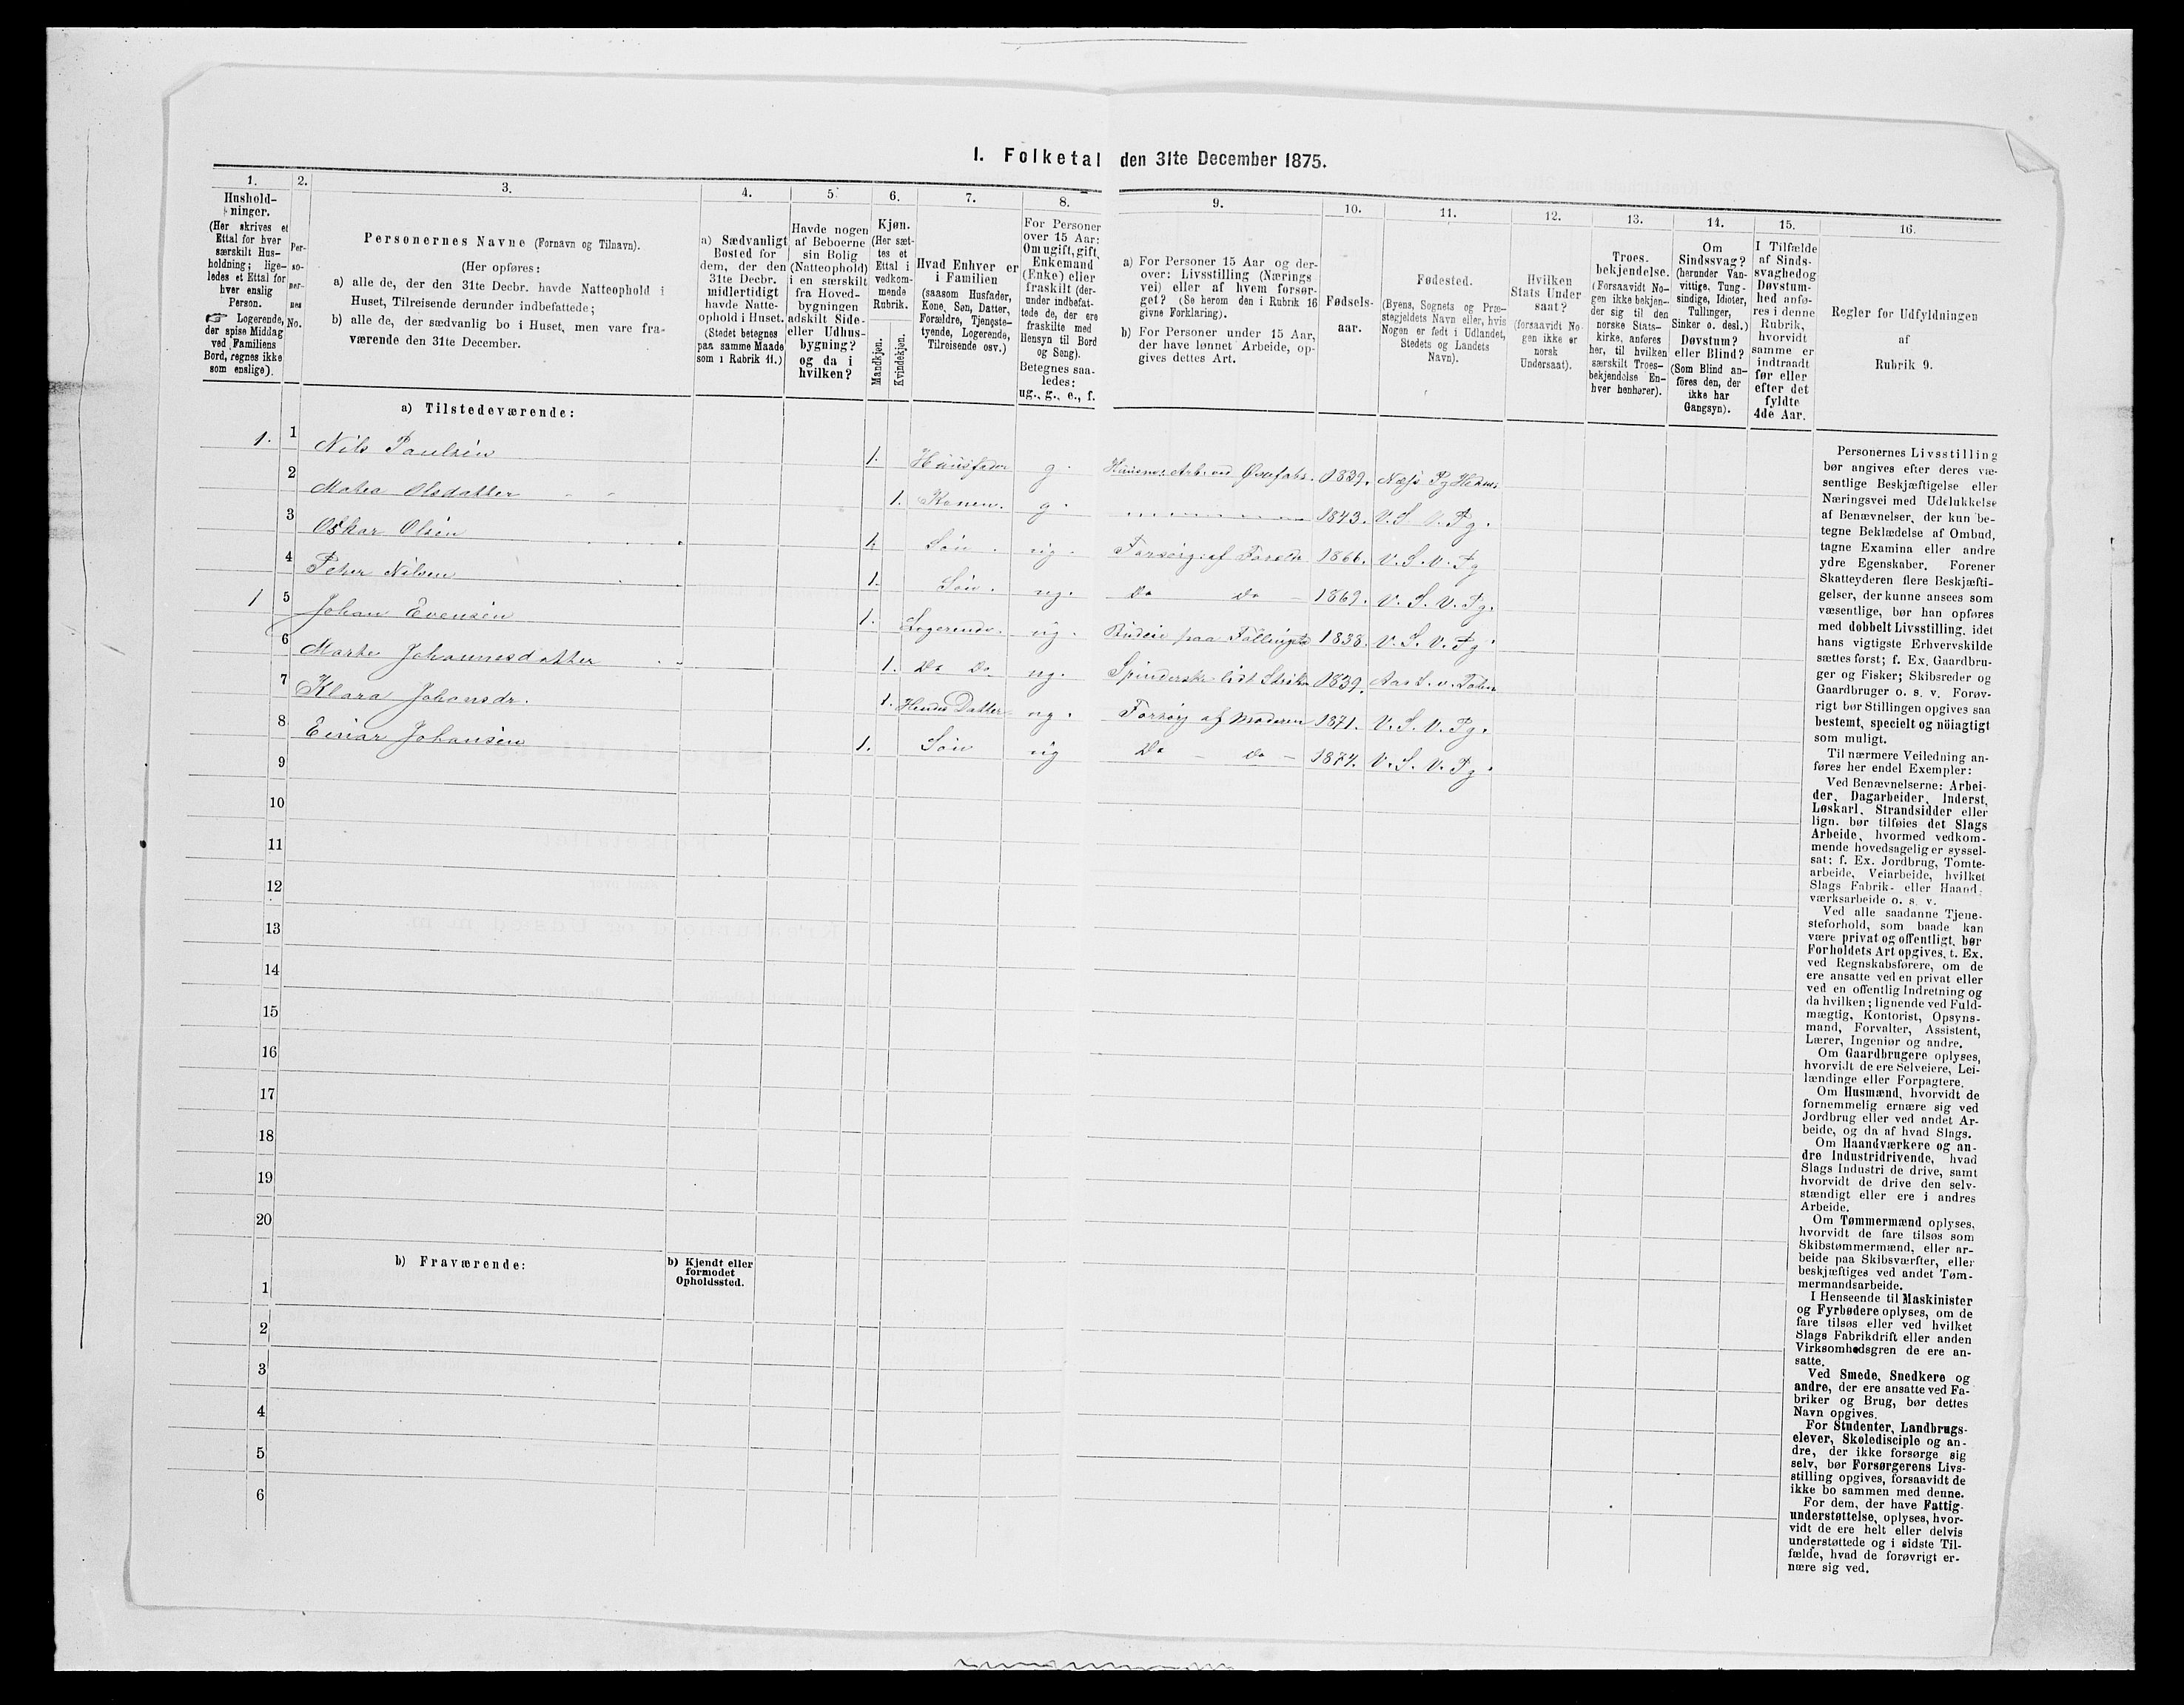 1. Folketal den 31te December 1875.
1.
Hushold-
ninger.
(Her skrives et
Ettal for hver
særskilt Hus-
holdning; lige-
ledes et Ettal for
hver enslig
Person.
☞ Logerende,
der spise Middag
ved Familiens
Bord, regnes ikke
som enslige).
2.
Per-
so-
ner-
nes
No.
3.
Personernes Navne (Fornavn og Tilnavn).
(Her opføres:
a) alle de, der den 31te Decbr. havde Natteophold i
Huset, Tilreisende derunder indbefattede;
b) alle de, der sædvanlig bo i Huset, men vare fra-
værende den 31te December.
4.
a) Sædvanligt
Bosted for
dem, der den
31te Decbr.
midlertidigt
havde Natte-
ophold i Huset.
(Stedet betegnes
paa samme Maade
som i Rubrik 11.)
5.
Havde nogen
af Beboerne
sin Bolig
(Natteophold)
i en særskilt
fra Hoved-
bygningen
adskilt Side-
eller Udhus-
bygning?
og da i
hvilken?
6.
Kjøn.
(Her sæt-
tes et
Ettal i
vedkom-
mende
Rubrik.
Mandkjøn.
Kvindekjøn.
7.
Hvad Enhver er
i Familien
(saasom Husfader,
Kone, Søn, Datter,
Forældre, Tjeneste-
tyende, Logerende,
Tilreisende osv.)
8.
For Personer
over 15 Aar:
Om ugift, gift,
Enkemand
(Enke) eller
fraskilt (der-
under indbefat-
tede de, der ere
fraskilte med
Hensyn til Bord
og Seng).
Betegnes saa-
ledes:
ug., g., e., f.
9.
a) For Personer 15 Aar og der-
over: Livsstilling (Nærings
vei) eller af hvem forsør-
get? (Se herom den i Rubrik 16
givne Forklaring).
b) For Personer under 15 Aar,
der have lønnet Arbeide, op-
gives dettes Art.
10.
Fødsels-
aar.
11.
Fødested.
(Byens, Sognets og Præ-
stegjeldets Navn eller, hvis
Nogen er født i Udlandet,
Stedets og Landets
Navn).
12.
Hvilken
Stats Under
saat?
(forsaavidt No-
gen ikke er
norsk
Undersaat).
13.
Troes-
bekjendelse.
(Forsaavidt No-
gen ikke bekjen-
der sig til den
norske Stats-
kirke, anføres
her, til hvilken
særskilt Troes-
bekjendelse En-
hver henhører).
14.
Om
Sindssvag?
(herunder Van-
vittige, Tung-
sindige, Idioter,
Tullinger,
Sinker o. desl.)
Døvstum?
eller Blind?
(Som Blind an-
føres den, der
ikke har
Gangsyn).
15.
I Tilfælde
af Sinds-
svaghed og
Døvstum-
hed anfø-
res i denne
Rubrik,
hvorvidt
samme er
indtraadt
før eller
efter det
fyldte
4de Aar.
16.
Regler for Udfyldningen
af
Rubrik 9.
a) Tilstedeværende:
1. 1 Nils Paulsen 1. Huusfader g. 1839.
2 Mathea Olsdatter 1. Konen. g. 1843. V. S. V. Pg.
3 Oskar Olsen 1. Søn. ug. Forsørg. af 1866. V. S. V. Pg
4 Peter Nilsen 1. Søn. ug. Do Do 1869. V. S. V. Pg.
1 5 Johan Evensen 1. Logerende. ug. paa 1838. V. S. V. Pg.
6 Marte Johannesdatter 1. Do Do ug. Spinderske 1839.
7 Klara Johansdr. 1. Hendes Datter ug. Forsørg af Moderen 1871. V. S. V. Pg.
8 Einar Johansen 1. Søn ug Do Do 1874. V. S. V. Pg.
9
10
11
12
13
14
15
16
17
18
19
20
b) Fraværende:
b) Kjendt eller
formodet
Opholdssted.
1
2
3
4
5
6
Personernes Livsstilling
bør angives efter deres væ-
sentlige Beskjæftigelse eller
Næringsvei med Udelukkelse
af Benævnelser, der kun be-
tegne Beklædelse af Ombud,
tagne Examina eller andre
ydre Egenskaber. Forener
Skatteyderen flere Beskjæfti-
gelser, der kunne ansees som
væsentlige, bør han opføres
med dobbelt Livsstilling, idet
hans vigtigste Erhvervskilde
sættes først; f. Ex. Gaardbru-
ger og Fisker; Skibsreder og
Gaardbruger o. s. v. Forøv-
rigt bør Stillingen opgives saa
bestemt, specielt og nöiagtigt
som muligt.
Til nærmere Veiledning an-
føres her endel Exempler:
Ved Benævnelserne: Arbei-
der, Dagarbeider, Inderst,
Løskarl, Strandsidder eller
lign. bør tilføies det Slags
Arbeide, hvormed vedkom-
mende hovedsagelig er syssel-
sat; f. Ex. Jordbrug, Tomte-
arbeide, Veiarbeide, hvilket
Slags Fabrik- eller Haand-
værksarbeide o. s. v.
Ved alle saadanne Tjene-
steforhold, som baade kan
være privat og offentligt, bør
Forholdets Art opgives, t. Ex.
ved Regnskabsførere, om de
ere ansatte ved en privat eller
ved en offentlig Indretning og
da hvilken; lignende ved Fuld-
mægtig, Kontorist, Opsyns-
mand, Forvalter, Assistent,
Lærer, Ingeniør og andre.
Om Gaardbrugere oplyses,
hvorvidt de ere Selveiere, Lei-
lændinge eller Forpagtere.
Om Husmænd, hvorvidt de
fornemmelig ernære sig ved
Jordbrug eller ved andet Ar-
beide, og da af hvad Slags.
Om Haandværkere og an-
dre Industridrivende, hvad
Slags Industri de drive, samt
hvorvidt de drive den selv-
stændigt eller ere i andres
Arbeide.
Om Tømmermænd oplyses,
hvorvidt de fare tilsøs som
Skibstømmermænd, eller ar-
beide paa Skibsværfter, eller
beskjæftiges ved andet Tøm-
mermandsarbeide.
I Henseende til Maskinister
og Fyrbødere oplyses, om de
fare tilsøs eller ved hvilket
Slags Fabrikdrift eller anden
Virksomhedsgren de ere an-
satte.
Ved Smede, Snedkere og
andre, der ere ansatte ved Fa-
briker og Brug, bør dettes
Navn opgives.
For Studenter, Landbrugs-
elever, Skoledisciple og an-
dre, der ikke forsørge sig
selv, bør Forsørgerens Livs-
stilling opgives, forsaavidt de
ikke bo sammen med denne.
For dem, der have Fattig-
understøttelse, oplyses, hvor-
vidt de ere helt eller delvis
understøttede og i sidste Til-
fælde, hvad de forøvrigt er-
nære sig ved.